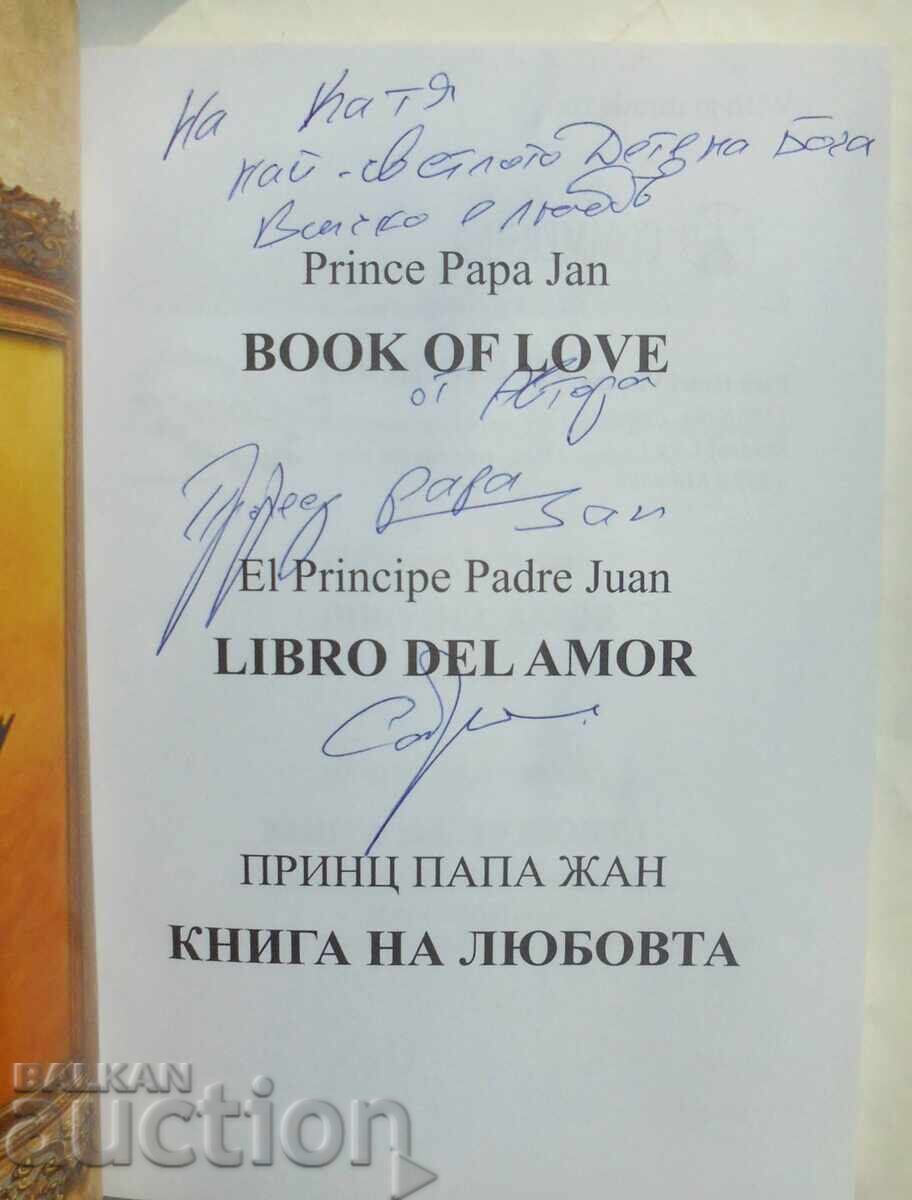 На Катя
най-светлото Дете на Бога
Всичко е любовъ
Prince Papa Jan
BOOK OF LOVE
от Автора
El Principe Padre Juan
LIBRO DEL AMOR
ПРИНЦ ПАПА ЖАН
КНИГА НА ЛЮБОВТА
BALKAN
auction